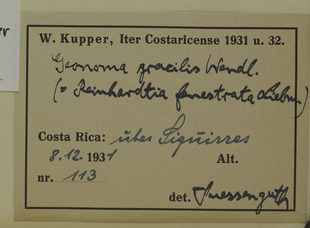 er
W. Kupper, Iter Costaricense 1931 u. 32.
Geonoma gracilis Wendl.
(= Reinhardtia fenestrata Liebm.)
Costa Rica: über Siquirres
8.12.1931 Alt.
nr. 113
det. Suessenguth